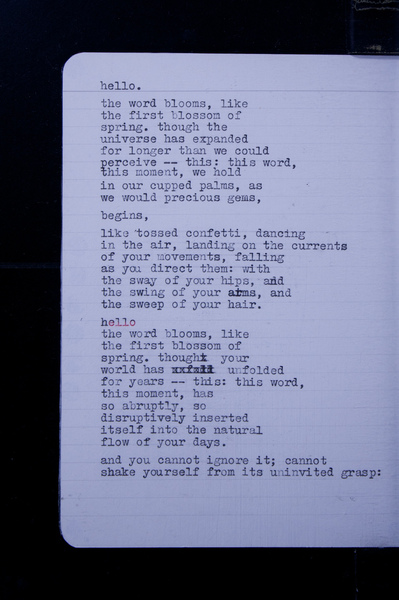 hello.
the word blooms, like
the first blossom of
spring. though the
universe has expanded
for longer than we could
perceive -- this: this word,
this moment, we hold
in our cupped palms, as
we would precious gems,
begins,
like tossed confetti, dancing
in the air, landing on the currents
of your movements, falling
as you direct them: with
the sway of your hips, and
the swing of your arms, and
the sweep of your hair.
hello
the word blooms, like
the first blossom of
spring. though your
world has unfolded
for years -- this: this word,
this moment, has
so abruptly, so
disruptively inserted
itself into the natural
flow of your days.
and you cannot ignore it; cannot
shake yourself from its uninvited grasp: